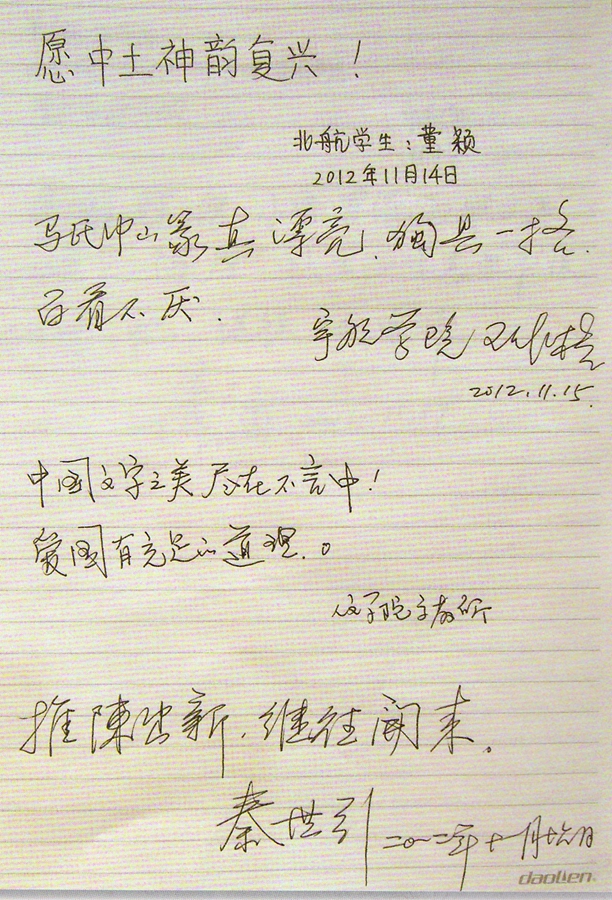 愿中土神韵复兴！
北航学生：董颖
2012年11月14日
马氏中山篆真漂亮，独具一格.
百看不厌.
宇航学院
2012.11.15.
中国文字之美尽在不言中！
爱国有充足的道理。
推陳出新，继往開来。
秦世引 二〇一二年十一月十六日
daolien